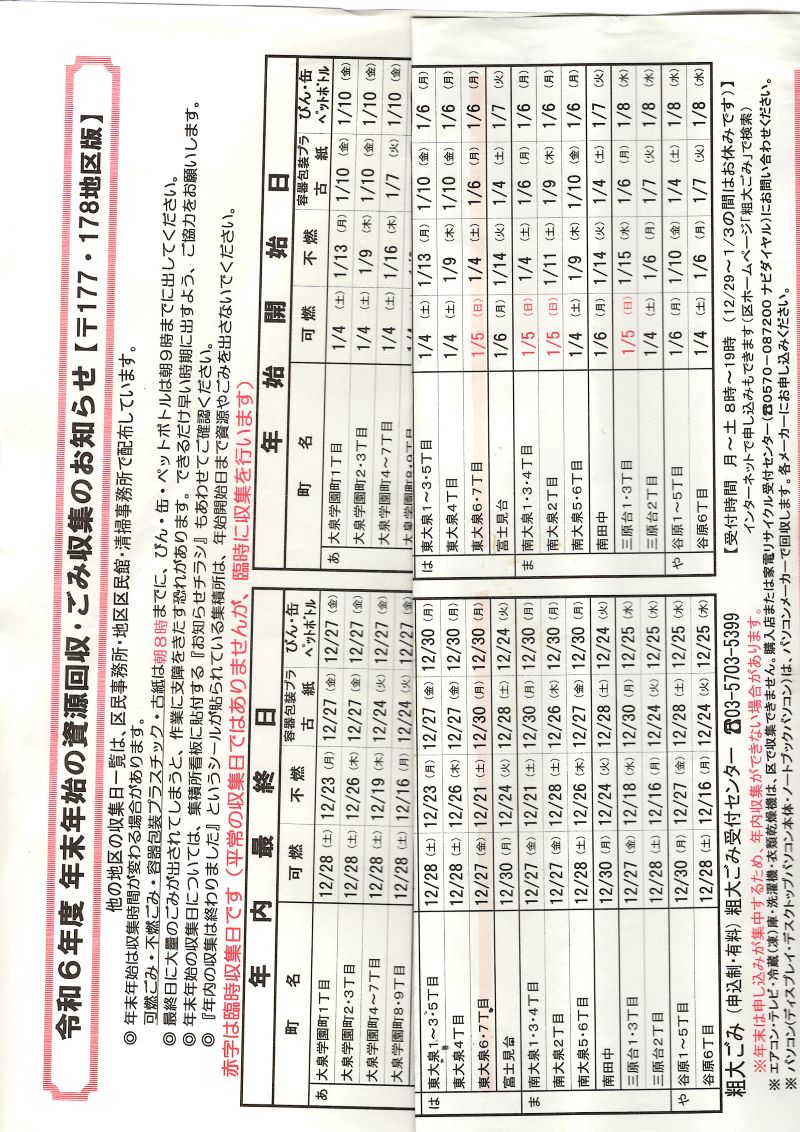 令和6年度 年末年始の資源回収・ごみ収集のお知らせ【〒177・178地区版】
他の地区の収集日一覧は、区民事務所・地区区民館・清掃事務所で配布しています。
◎ 年末年始は収集時間が変わる場合があります。
可燃ごみ・不燃ごみ・容器包装プラスチック・古紙は朝8時までに、びん・缶・ペットボトルは朝9時までに出してください。
◎ 最終日に大量のごみが出されてしまうと、作業に支障をきたす恐れがあります。できるだけ早い時期に出すよう、ご協力をお願いします。
◎ 年末年始の収集日については、集積所看板に貼付する『お知らせチラシ』もあわせてご確認ください。
◎『年内の収集は終わりました』というシールが貼られている集積所は、年始開始日まで資源やごみを出さないでください。
赤字は臨時収集日です（平常の収集日ではありませんが、臨時に収集を行います）
年内最終日
町名 可燃 不燃 容器包装プラ 古紙 びん・缶 ペットボトル
あ 大泉学園町1丁目 12/28（土） 12/23（月） 12/27（金） 12/27（金）
大泉学園町2・3丁目 12/28（土） 12/26（木） 12/27（金） 12/27（金）
大泉学園町4～7丁目 12/28（土） 12/19（木） 12/24（火） 12/27（金）
大泉学園町8・9丁目 12/28（土） 12/16（月） 12/24（火） 12/27（金）
は 東大泉1～3・5丁目 12/28（土） 12/23（月） 12/27（金） 12/30（月）
東大泉4丁目 12/28（土） 12/26（木） 12/27（金） 12/30（月）
東大泉6・7丁目 12/27（金） 12/21（土） 12/30（月） 12/30（月）
富士見台 12/30（月） 12/24（火） 12/28（土） 12/24（火）
ま 南大泉1・3・4丁目 12/27（金） 12/21（土） 12/30（月） 12/30（月）
南大泉2丁目 12/27（金） 12/28（土） 12/26（木） 12/30（月）
南大泉5・6丁目 12/28（土） 12/26（木） 12/27（金） 12/30（月）
南田中 12/30（月） 12/24（火） 12/28（土） 12/24（火）
三原台1・3丁目 12/27（金） 12/18（水） 12/30（月） 12/25（水）
三原台2丁目 12/28（土） 12/16（月） 12/24（火） 12/25（水）
や 谷原1～5丁目 12/30（月） 12/27（金） 12/28（土） 12/25（水）
谷原6丁目 12/28（土） 12/16（月） 12/24（火） 12/25（水）
年始開始日
町名 可燃 不燃 容器包装プラ 古紙 びん・缶 ペットボトル
あ 大泉学園町1丁目 1/4（土） 1/13（月） 1/10（金） 1/10（金）
大泉学園町2・3丁目 1/4（土） 1/9（木） 1/10（金） 1/10（金）
大泉学園町4～7丁目 1/4（土） 1/16（木） 1/7（火） 1/10（金）
大泉学園町8・9丁目
は 東大泉1～3・5丁目 1/4（土） 1/13（月） 1/10（金） 1/6（月）
東大泉4丁目 1/4（土） 1/9（木） 1/10（金） 1/6（月）
東大泉6・7丁目 1/5（日） 1/4（土） 1/6（月） 1/6（月）
富士見台 1/6（月） 1/14（火） 1/4（土） 1/7（火）
ま 南大泉1・3・4丁目 1/5（日） 1/4（土） 1/6（月） 1/6（月）
南大泉2丁目 1/5（日） 1/11（土） 1/9（木） 1/6（月）
南大泉5・6丁目 1/4（土） 1/9（木） 1/10（金） 1/6（月）
南田中 1/6（月） 1/14（火） 1/4（土） 1/7（火）
三原台1・3丁目 1/5（日） 1/15（水） 1/6（月） 1/8（水）
三原台2丁目 1/4（土） 1/6（月） 1/7（火） 1/8（水）
や 谷原1～5丁目 1/6（月） 1/10（金） 1/4（土） 1/8（水）
谷原6丁目 1/4（土） 1/6（月） 1/7（火） 1/8（水）
粗大ごみ（申込制・有料）粗大ごみ受付センター ☎03-5703-5399 【受付時間 月～土 8時～19時（12/29～1/3の間はお休みです）】
※年末は申し込みが集中するため、年内収集ができない場合があります。 インターネットで申し込みもできます（区ホームページ「粗大ごみ」で検索）
※ エアコン・テレビ・冷蔵（凍）庫・洗濯機・衣類乾燥機は、区で収集できません。購入店または家電リサイクル受付センター（☎0570-087200 ナビダイヤル）にお問い合わせください。
※ パソコン（ディスプレイ・デスクトップパソコン本体・ノートブックパソコン）は、パソコンメーカーで回収します。各メーカーにお申し込みください。